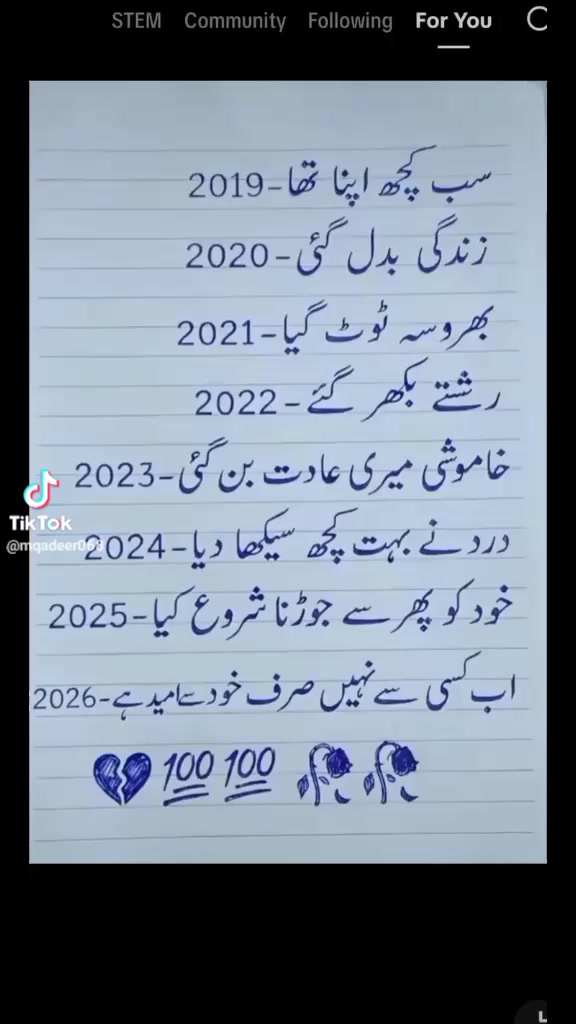 STEM Community Following For You
سب کچھ اپنا تھا-2019
زندگی بدل گئی-2020
بھروسہ ٹوٹ گیا-2021
رشتے بکھر گئے-2022
خاموشی میری عادت بن گئی-2023
درد نے بہت کچھ سیکھا دیا-2024
خود کو پھر سے جوڑنا شروع کیا-2025
اب کسی سے نہیں صرف خود سے امید ہے-2026
💔 100 100 🥀🥀
TikTok